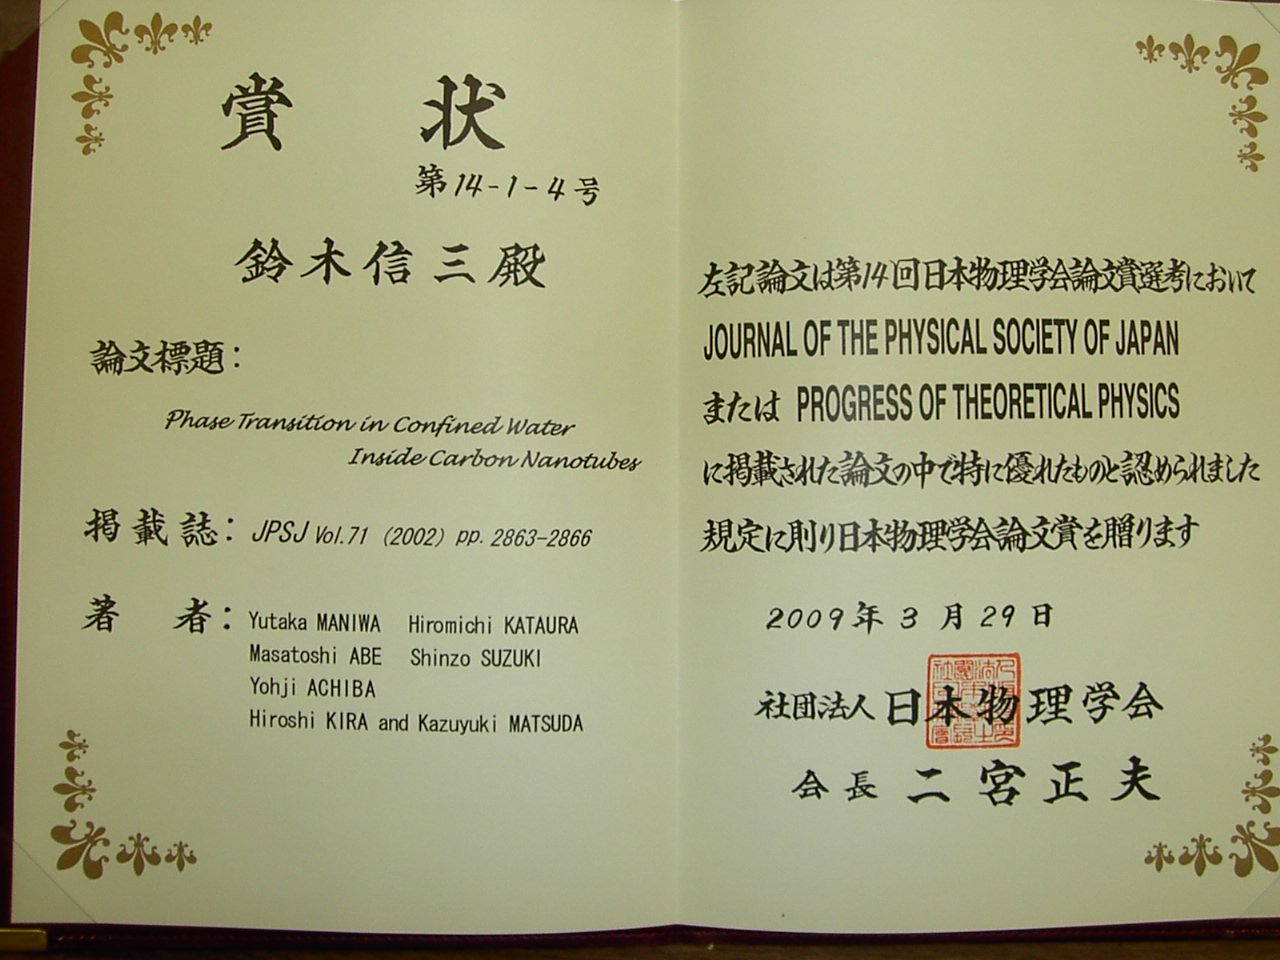 賞状
第14-1-4号
鈴木信三殿
論文標題:
Phase Transition in Confined Water
Inside Carbon Nanotubes
掲載誌: JPSJ Vol.71 (2002) pp. 2863-2866
著者: Yutaka MANIWA Hiromichi KATAURA
Masatoshi ABE Shinzo SUZUKI
Yohji ACHIBA
Hiroshi KIRA and Kazuyuki MATSUDA
左記論文は第14回日本物理学会論文賞選考において
JOURNAL OF THE PHYSICAL SOCIETY OF JAPAN
または PROGRESS OF THEORETICAL PHYSICS
に掲載された論文の中で特に優れたものと認められました
規定に則り日本物理学会論文賞を贈ります
2009年3月29日
社団法人日本物理学会
会長 二宮正夫